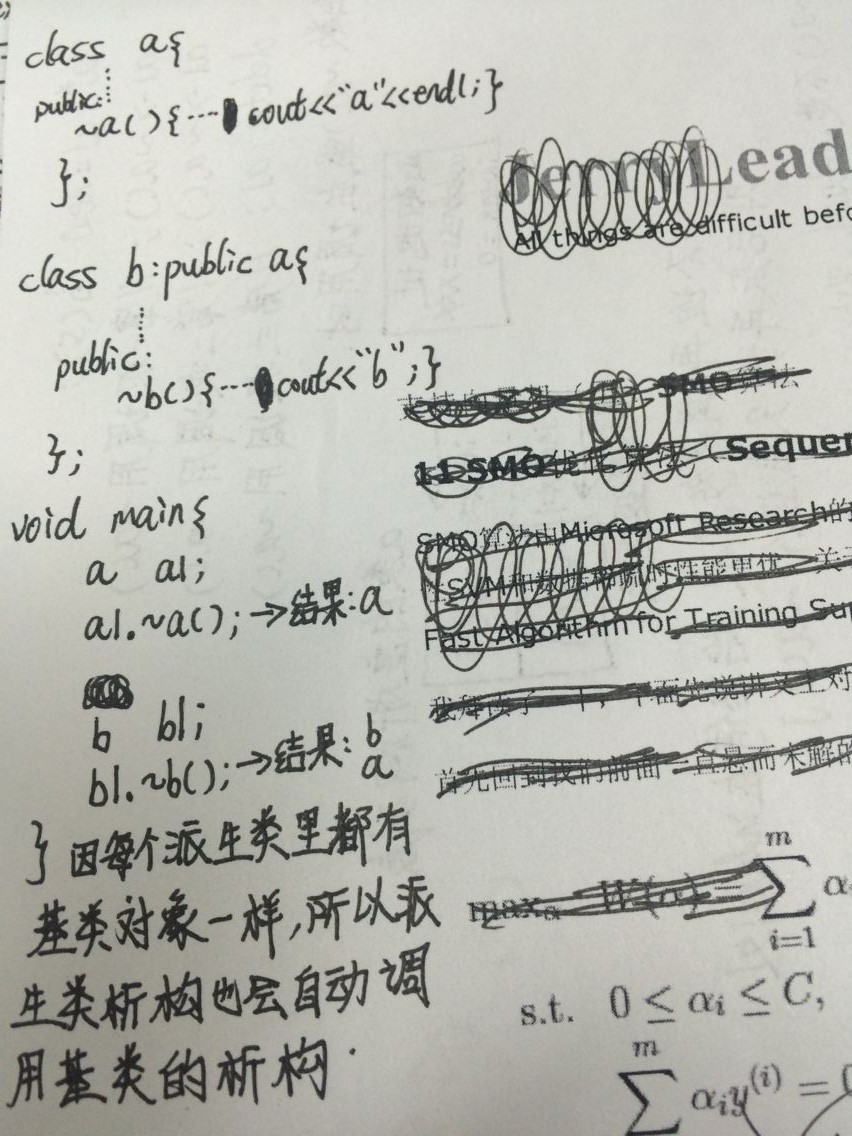 class a{
public:
~a(){··· cout<<"a"<<endl;}
};
class b:public a{
public:
~b(){··· cout<<"b";}
};
void main{
a a1;
a1.~a();→结果:a
b b1;
b1.~b();→结果:b
a
}因每个派生类里都有
基类对象一样,所以派
生类析构也会自动调
用基类的析构.
JerryLead
All things are difficult befo
SMO算法
11 SMO优化算法（Sequen
SMO算法由Microsoft Research的
Fast Algorithm for Training Sup
首先回到我们前面一直悬而未解的
max W(α) = ∑ α
m
i=1
s.t. 0 ≤ αi ≤ C,
m
∑ αiy(i) = 0